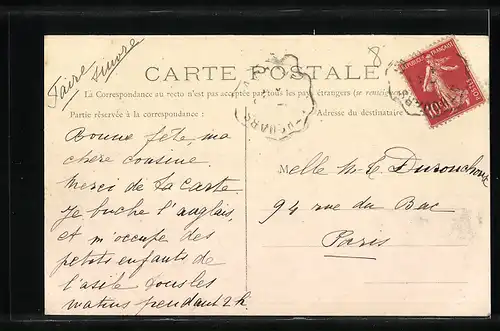 Faire suivre
8
CARTE POSTALE
La Correspondance au recto n'est pas acceptée par tous les pays étrangers (se renseigner
Partie réservée à la correspondance :
Adresse du destinataire
REPUBLIQUE FRANÇAISE
10
POSTES
Bonne fête, ma
chère cousine
Merci de ta carte
Je buche l'anglais,
et m'occupe des
petits enfants de
l'asile tous les
matins pendant 2h.
Melle M. T.
94 rue du Bac
Paris